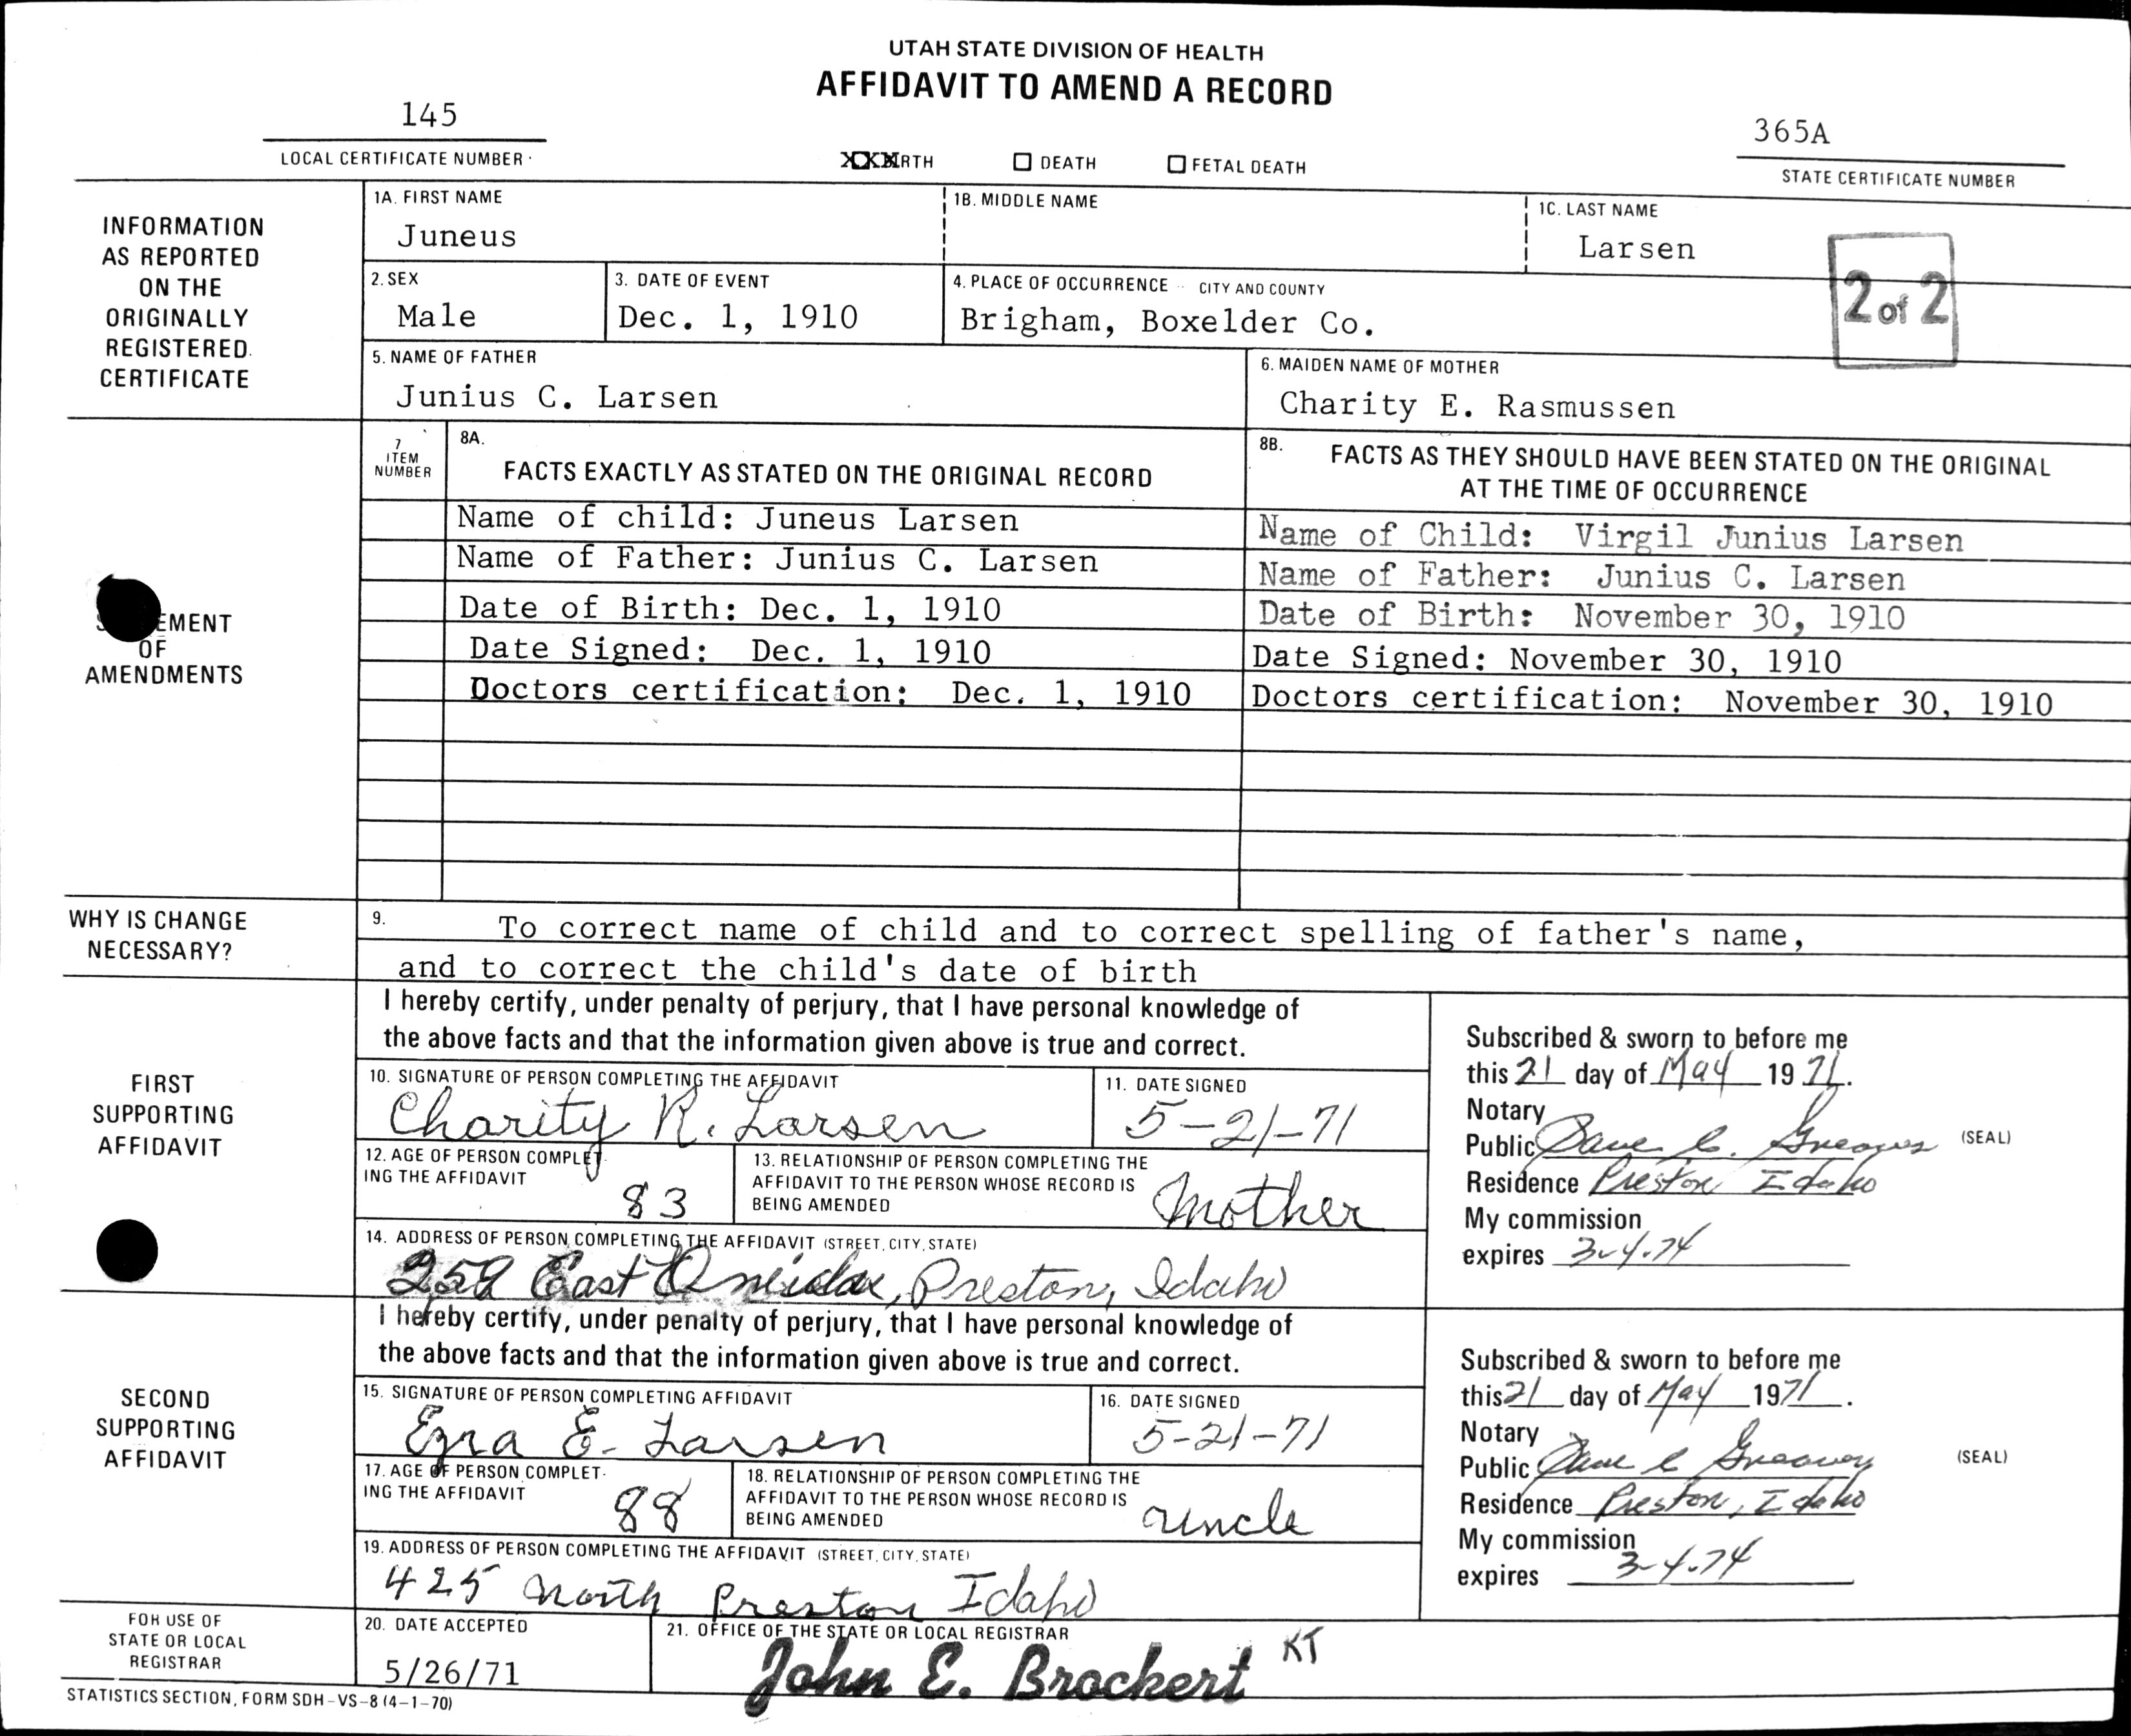 UTAH STATE DIVISION OF HEALTH
AFFIDAVIT TO AMEND A RECORD
145
365A
LOCAL CERTIFICATE NUMBER
XXXIRTH ☐ DEATH ☐ FETAL DEATH
STATE CERTIFICATE NUMBER
INFORMATION
AS REPORTED
ON THE
ORIGINALLY
REGISTERED
CERTIFICATE
1A. FIRST NAME
Juneus
1B. MIDDLE NAME
1C. LAST NAME
Larsen
2 of 2
2. SEX
Male
3. DATE OF EVENT
Dec. 1, 1910
4. PLACE OF OCCURRENCE -- CITY AND COUNTY
Brigham, Boxelder Co.
5. NAME OF FATHER
Junius C. Larsen
6. MAIDEN NAME OF MOTHER
Charity E. Rasmussen
EMENT
OF
AMENDMENTS
7
ITEM
NUMBER
8A.
FACTS EXACTLY AS STATED ON THE ORIGINAL RECORD
8B. FACTS AS THEY SHOULD HAVE BEEN STATED ON THE ORIGINAL
AT THE TIME OF OCCURRENCE
Name of child: Juneus Larsen
Name of Child: Virgil Junius Larsen
Name of Father: Junius C. Larsen
Name of Father: Junius C. Larsen
Date of Birth: Dec. 1, 1910
Date of Birth: November 30, 1910
Date Signed: Dec. 1, 1910
Date Signed: November 30, 1910
Doctors certification: Dec. 1, 1910
Doctors certification: November 30, 1910
WHY IS CHANGE
NECESSARY?
9. To correct name of child and to correct spelling of father's name,
and to correct the child's date of birth
FIRST
SUPPORTING
AFFIDAVIT
I hereby certify, under penalty of perjury, that I have personal knowledge of
the above facts and that the information given above is true and correct.
10. SIGNATURE OF PERSON COMPLETING THE AFFIDAVIT
Charity R. Larsen
11. DATE SIGNED
5-21-71
12. AGE OF PERSON COMPLET-
ING THE AFFIDAVIT
83
13. RELATIONSHIP OF PERSON COMPLETING THE
AFFIDAVIT TO THE PERSON WHOSE RECORD IS
BEING AMENDED
Mother
14. ADDRESS OF PERSON COMPLETING THE AFFIDAVIT (STREET, CITY, STATE)
East Oneida, Preston, Idaho
Subscribed & sworn to before me
this 21 day of May 1971.
Notary
Public (SEAL)
Residence Preston Idaho
My commission
expires 3-4-74
SECOND
SUPPORTING
AFFIDAVIT
I hereby certify, under penalty of perjury, that I have personal knowledge of
the above facts and that the information given above is true and correct.
15. SIGNATURE OF PERSON COMPLETING AFFIDAVIT
Ezra E. Larsen
16. DATE SIGNED
5-21-71
17. AGE OF PERSON COMPLET-
ING THE AFFIDAVIT
88
18. RELATIONSHIP OF PERSON COMPLETING THE
AFFIDAVIT TO THE PERSON WHOSE RECORD IS
BEING AMENDED
uncle
19. ADDRESS OF PERSON COMPLETING THE AFFIDAVIT (STREET, CITY, STATE)
425 North Preston Idaho
Subscribed & sworn to before me
this 21 day of May 1971.
Notary
Public (SEAL)
Residence Preston, Idaho
My commission
expires 3-4-74
FOR USE OF
STATE OR LOCAL
REGISTRAR
20. DATE ACCEPTED
5/26/71
21. OFFICE OF THE STATE OR LOCAL REGISTRAR
John E. Brockert KT
STATISTICS SECTION, FORM SDH-VS-8 (4-1-70)